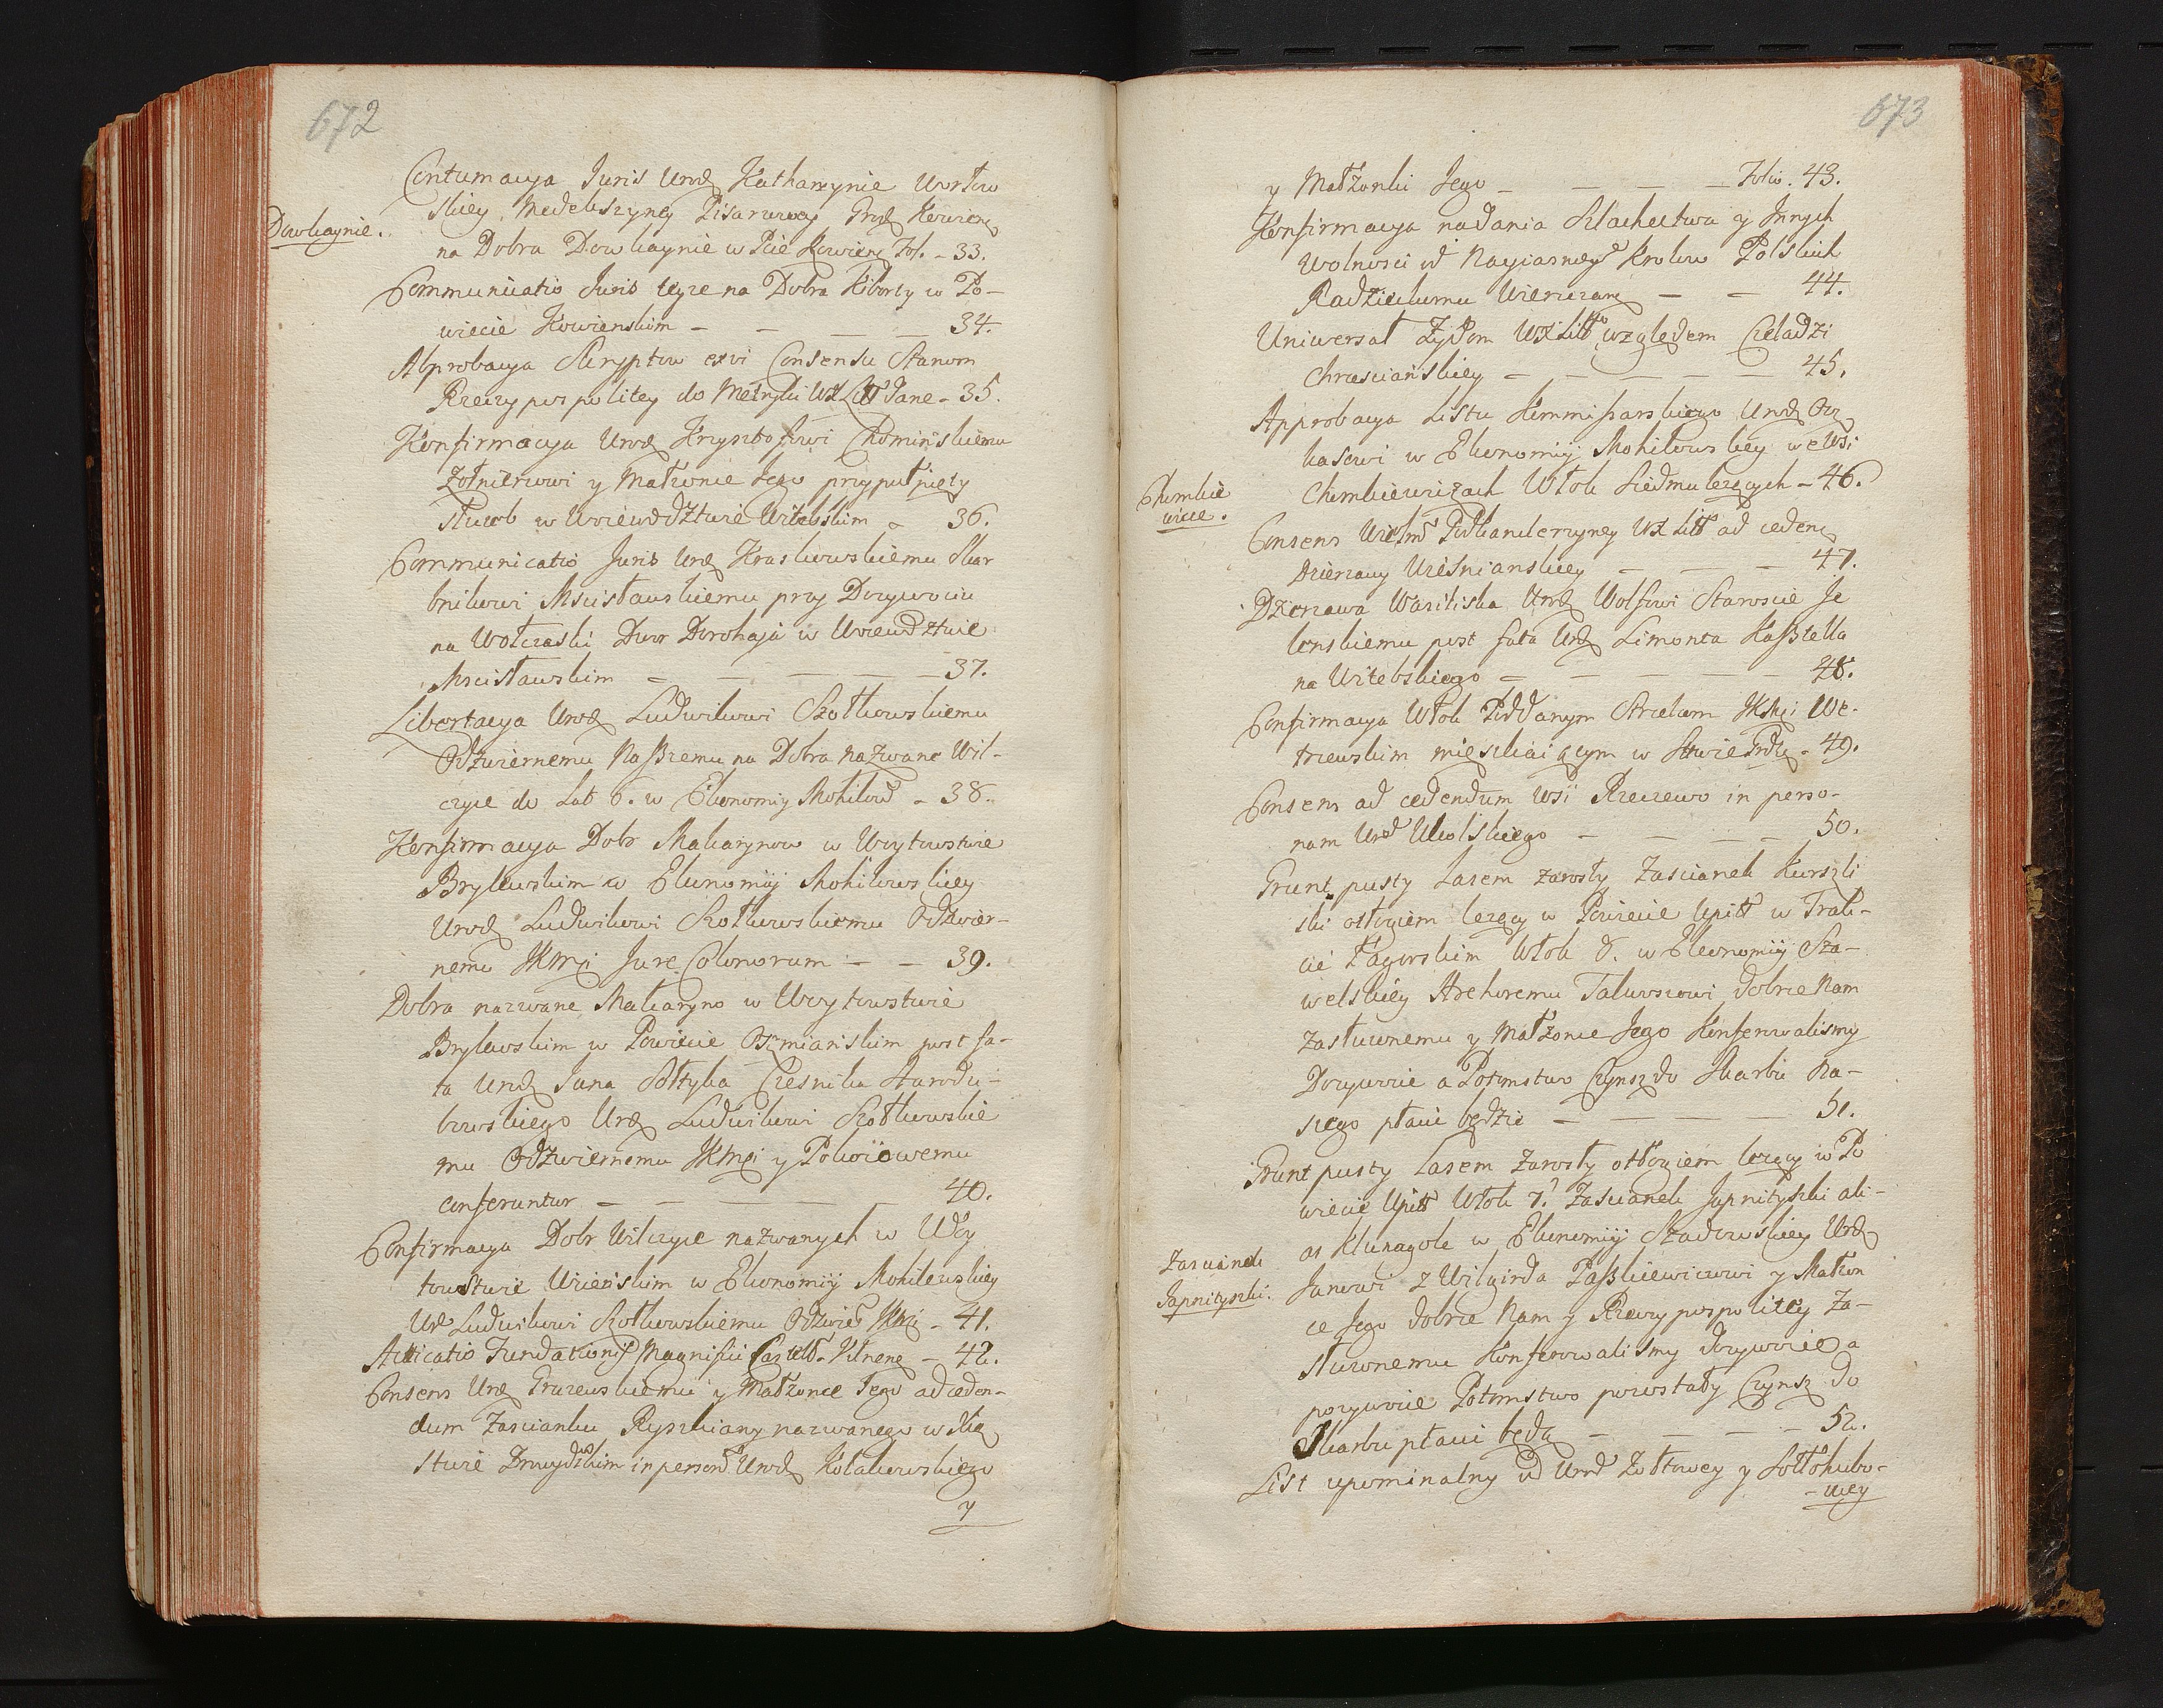 672
Contumacya Juris Urod Katharzynie Wortow
skiey, Medekszyney Pisarzowey Grod Kowiens
Dowkaynie.
na Dobra Dowkaynie w Pcie Kowiens Fol. - 33.
Communicatio Juris teyze na Dobra Kiborty w Po-
wiecie Kowienskim - - - - 34.
Abprobacya Skryptow exvi Consensu Stanow
Rzeczypospolitey do Metryki WXLitt dane - 35.
Konfirmacya Urod Krysztofowi Chominskiemu
Zołnierzowi y Małzonie Jego przyputnięty
słuzb w Woiewodztwie Witebskim - 36.
Communicatio Juris Urod Kraskowskiemu Skar
bnikowi Mscisławskiemu przy Dozywociu
na Wołczaski Dwor Dorohaja w Woiewodztwie
Mscisławskim - - - - 37.
Libertacya Urod Ludwikowi Szołkowskiemu
Odzwiernemu Naszemu na Dobra nazwane Wil-
czyce do Lat 6. w Ekonomiy Mohilow - 38.
Konfirmacya Dobr Makarynow w Woytowstwie
Brylewskim w Ekonomiy Mohilowskiey
Urod Ludwikowi Szołkowskiemu Odzwier-
nemu JKMci Jure Colonorum - - 39.
Dobra nazwane Makaryno w Woytowstwie
Brylewskim w Powiecie Oszmianskim post fa-
ta Urod Jana Sołtyka Czesnika Starodu-
bowskiego Urod Ludwikowi Szołkowskie
mu Odzwiernemu JKMci y Pokoiowemu
conferuntur - - - 40.
Confirmacya Dobr Wilczyce nazwanych w Woy
towstwie Wieinskim w Ekonomiy Mohilewskiey
Ur Ludwikowi Szołkowskiemu Odzwier JKMci - 41.
Acticatio Fundationis Magnifici Castell. Vilnens - 42.
Consens Urod Gruzewskiemu y Małzonce Jego ad ceden-
dum Zascianku Ryszkiany nazwanego w Sta
stwie Drwydskim in person Urod Kołakowskiego
y
673
y Małzonki Jego - - - - Folio. 43.
Konfirmacya nadania Szlachectwa y Innych
Wolnosci od Nayiasneys Krolow Polskich
Radzickumu Wieruzans - - 44.
Uniwersał Zydom WXLitt względem Czeladzi
Chrzesciańskiey - - - - - 45.
Approbacya Listu Kommiszarskiego Urod
kasowi w Ekonomiy Mohilowskiey we Wsi
Chemkie
wicze.
Chemkiewiczach Włok Siedmu lezących - 46.
Consens Wielm Podkanclerzyney WXLitt ad cedend
Dzierzawy Wiśnianskiey - - - 47.
Dzierzawa Wasiliska Urod Wolfowi Staroscie Je
lenskiemu post fata Urod Limonta Kasztella
na Witebskiego - - - - - 48.
Confirmacya Włok Poddanym Strzelcom JKMci We-
trzewskim mięszkaiącym w Sttwie Grodz - 49.
Consens ad cedendum wsi Rzeczewo in perso-
nam Urod Ukolskiego - - - 50.
Grunt pusty Lasem zarosły Zascianek Kurszli
ski ostogiem lezący w Powiecie Upitt w Trak-
cie Zagorskim Włok 8. w Ekonomiy Sza-
welskiey Strehoremu Talwoszowi dobrze Nam
zasłuzonemu y Małzonce Jego Konferowalismy
Dozywocie a Potomstwo Czynsz do Skarbu Na-
szego płacić będzie - - - - 51.
Grunt pusty Lasem zarosły ostogiem lezący w Po
wiecie Upitt Włok 7. Zascianek Japnityszki ali-
Zascianek
Japnityszki.
as Klunagole w Ekonomiy Szadowskiey Urod
Janowi z Wilgirda Paszkiewiczowi y Małzon
ce Jego dobrze Nam y Rzeczypospolitey Za-
słuzonemu Konferowalismy dozywocie a
pozywocie Potomstwo pozostały Czynsz do
Skarbu płacić będą - - - - 52.
List upominalny od Urod Zołtowey y Sołłohubo-
- wey